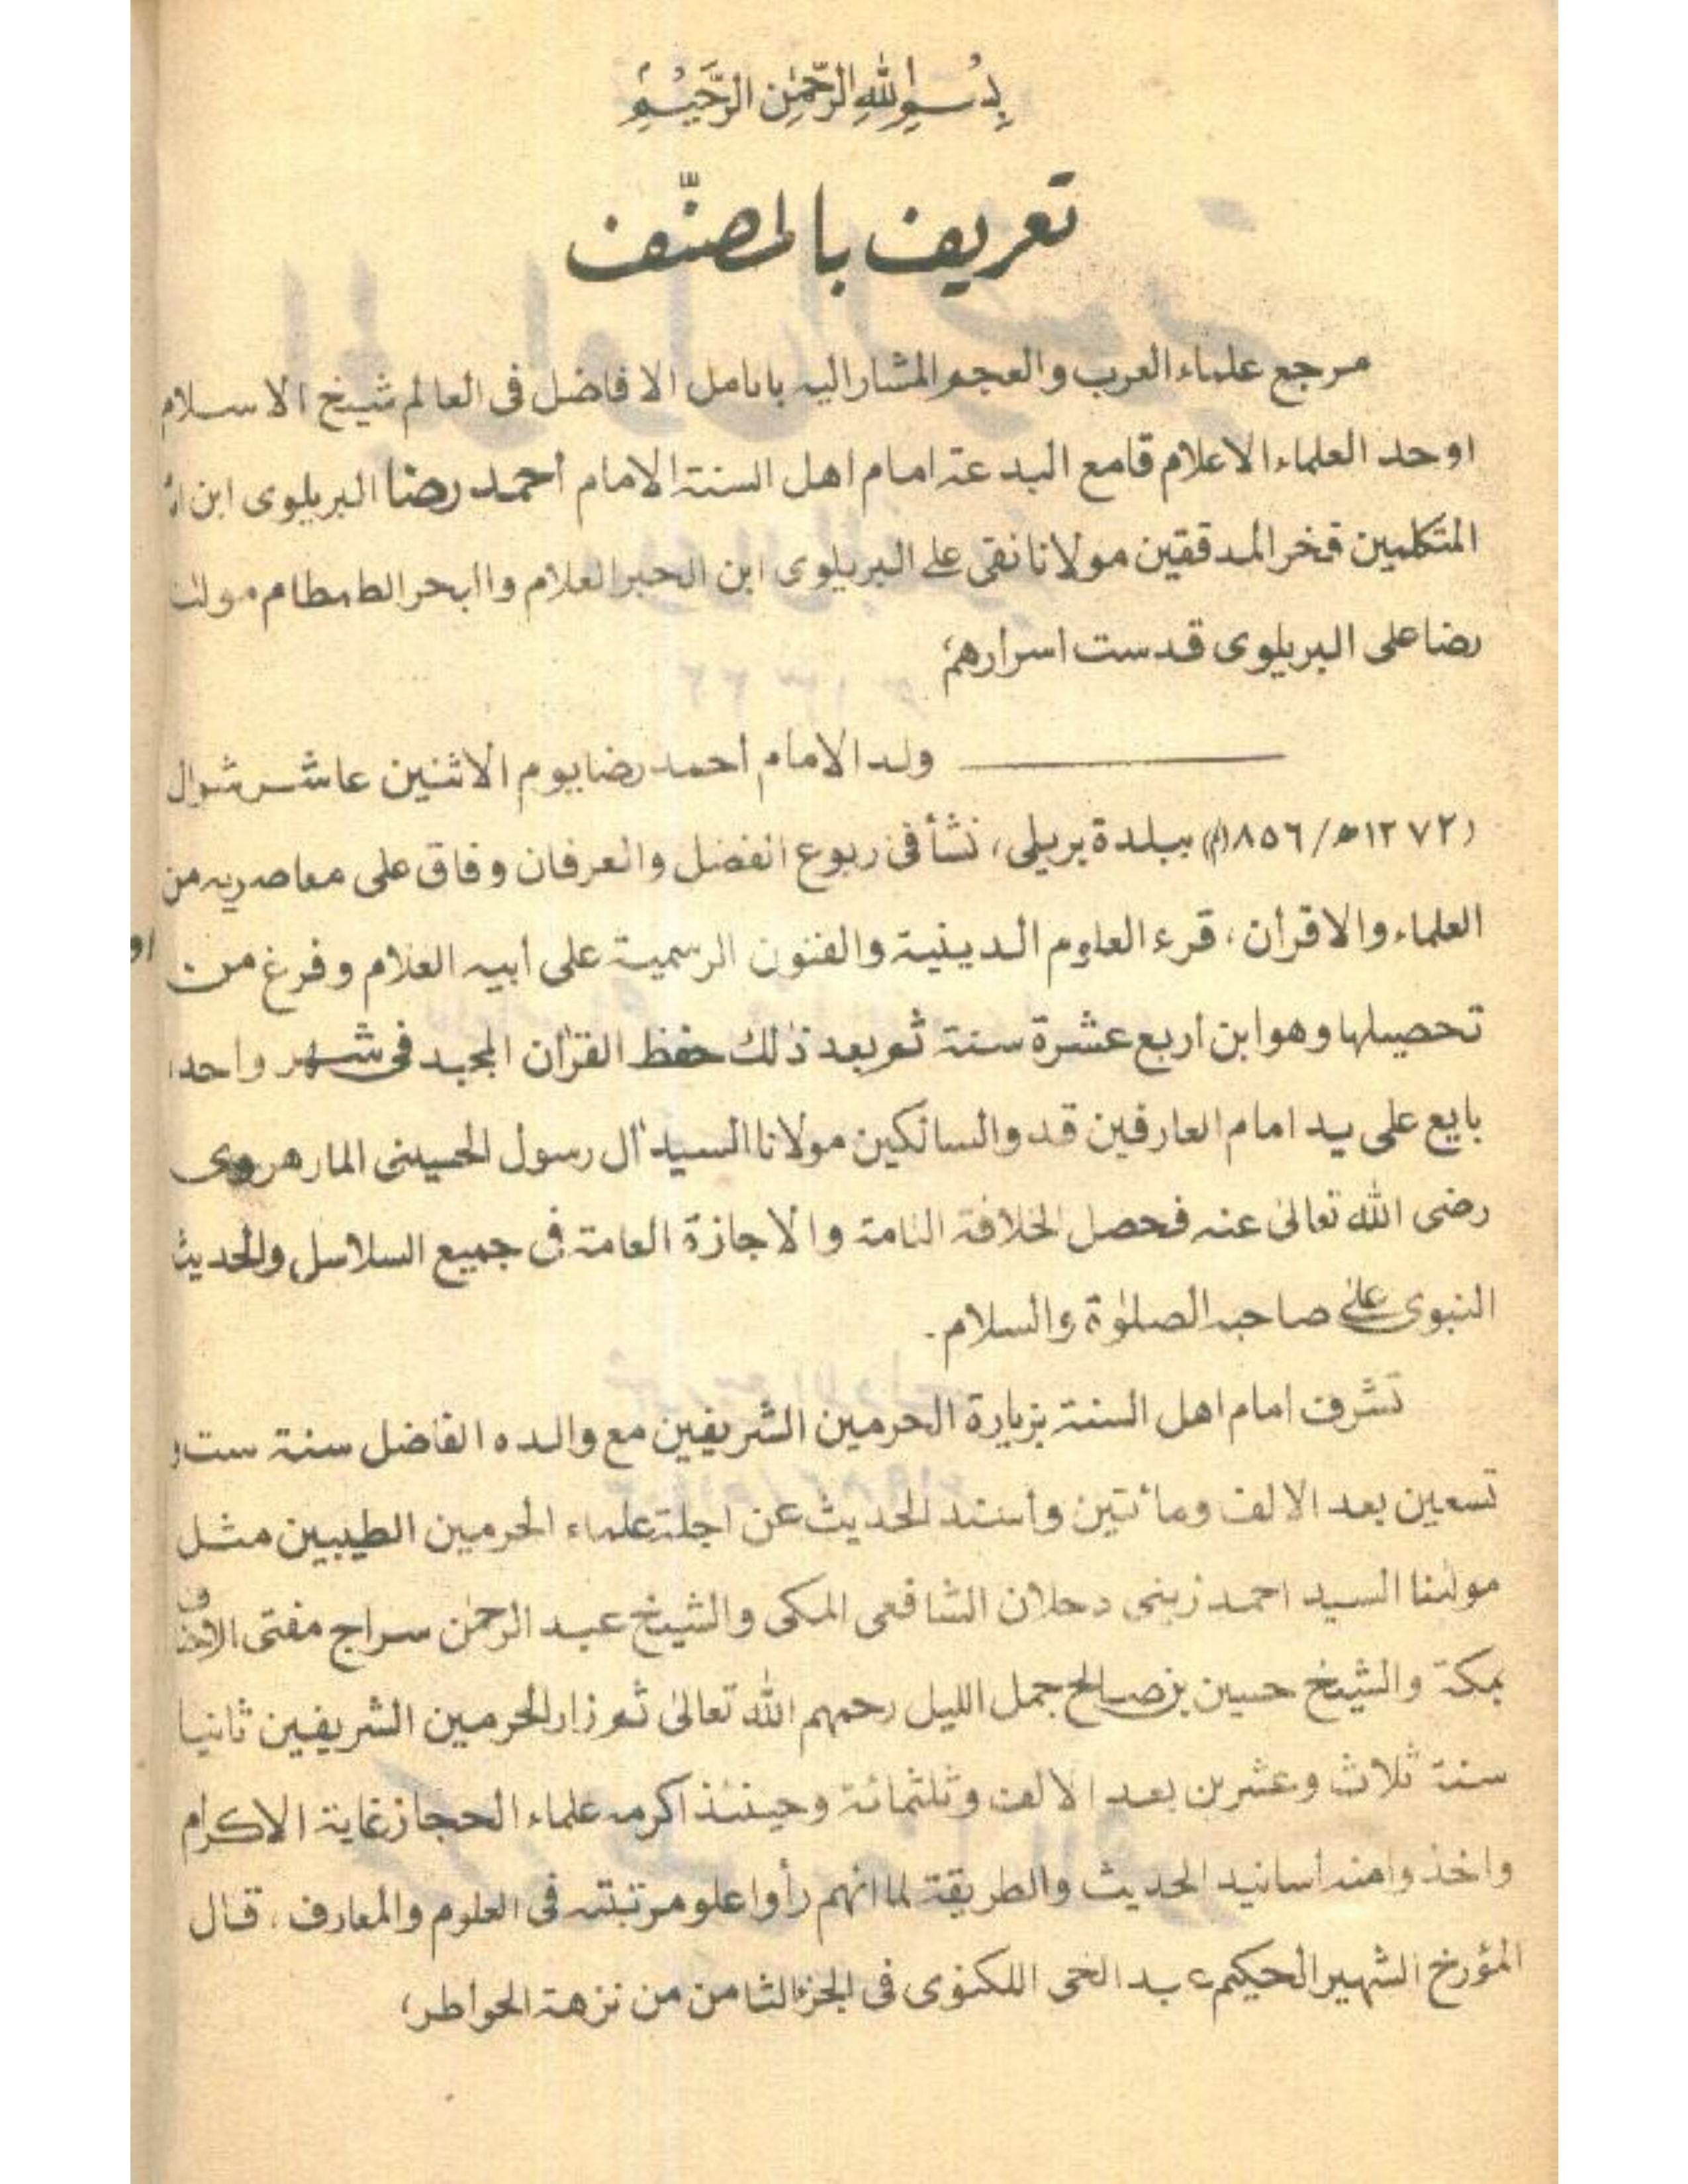 بِسْمِ اللهِ الرَّحْمٰنِ الرَّحِيْمِ
تعريف بالمصنّف
مرجع علماء العرب والعجم المشار اليه بانامل الافاضل فى العالم شيخ الاسلام
اوحد العلماء الاعلام قامع البدعة امام اهل السنة الامام أحمد رضا البريلوى ابن
المتكلمين فخر المدققين مولانا نقى على البريلوى ابن الحبر العلام واابحر الطمطام مولٰنا
رضا على البريلوى قدست اسرارهم؛
ولد الامام أحمد رضا يوم الاثنين عاشر شوال
(١٢٧٢ه/١٨٥٦م) ببلدة بريلى، نشأ فى ربوع الفضل والعرفان وفاق على معاصريه من
العلماء والاقرأن، قرء العلوم الدينية والفنون الرسمية على أبيه العلام وفرغ من
تحصيلها وهو ابن أربع عشرة سنة ثم بعد ذٰلك حفظ القرٰان المجيد فى شهر واحد،
بايع على يد امام العارفين قدوالسالكين مولانا السيد آل رسول الحسينى المارهروى
رضى الله تعالىٰ عنه فحصل الخلافة التامة والاجازة العامة فى جميع السلاسل والحديث
النبوى علىٰ صاحبه الصلوٰة والسلام.
تشرف امام اهل السنة بزيارة الحرمين الشريفين مع والده الفاضل سنة ست و
تسعين بعد الالف ومائتين وأسند الحديث عن اجلة علماء الحرمين الطيبين مثل
مولٰنا السيد احمد زينى دحلان الشافعى المكى والشيخ عبد الرحمٰن سراج مفتى الاحناف
بمكة والشيخ حسين بن صالح جمل الليل رحمهم الله تعالىٰ ثم زار الحرمين الشريفين ثانيا
سنة ثلاث وعشرين بعد الالف وثلثمائة وحينئذ اكرمه علماء الحجاز غاية الاكرام
واخذوا منه أسانيد الحديث والطريقة لما انهم رأوا علو مرتبته فى العلوم والمعارف، قال
المؤرخ الشهير الحكيم عبد الحى اللكنوى فى الجزء الثامن من نزهة الخواطر؛